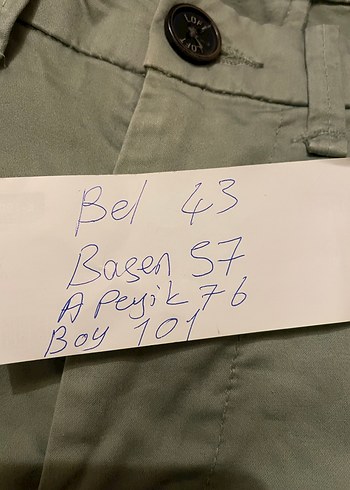 LOFT
LOFT
Bel 43
Basen 57
A Peyik 76
Boy 101